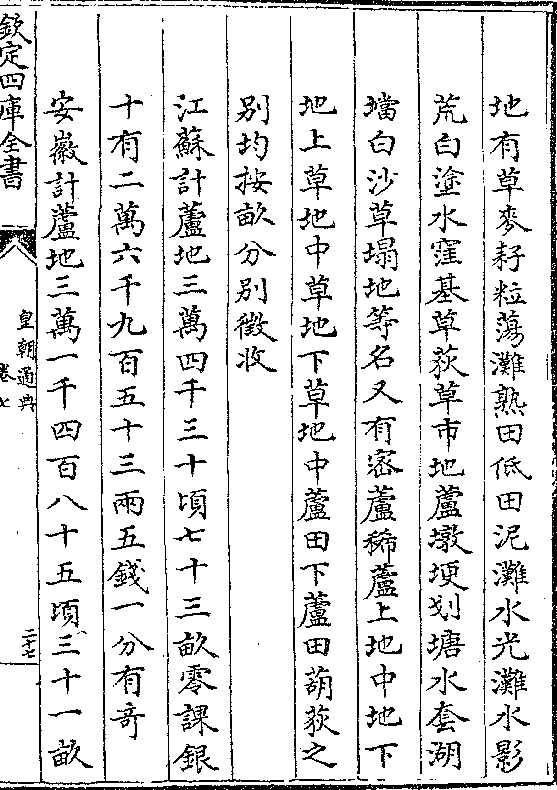 地有草麥耔粒蕩灘熟田低田泥灘水光灘水影
荒白塗水窪基草荻草市地蘆墩埂划塘水套湖
壋白沙草塌地等名又有密蘆稀蘆上地中地下
地上草地中草地下草地中蘆田下蘆田葫荻之
別均按畝分別徵收
江蘇計蘆地三萬四千三十頃七十三畝零課銀
十有二萬六千九百五十三兩五錢一分有奇
安徽計蘆地三萬一千四百八十五頃三十一畝
欽定四庫全書
皇朝通典
卷七
二十七